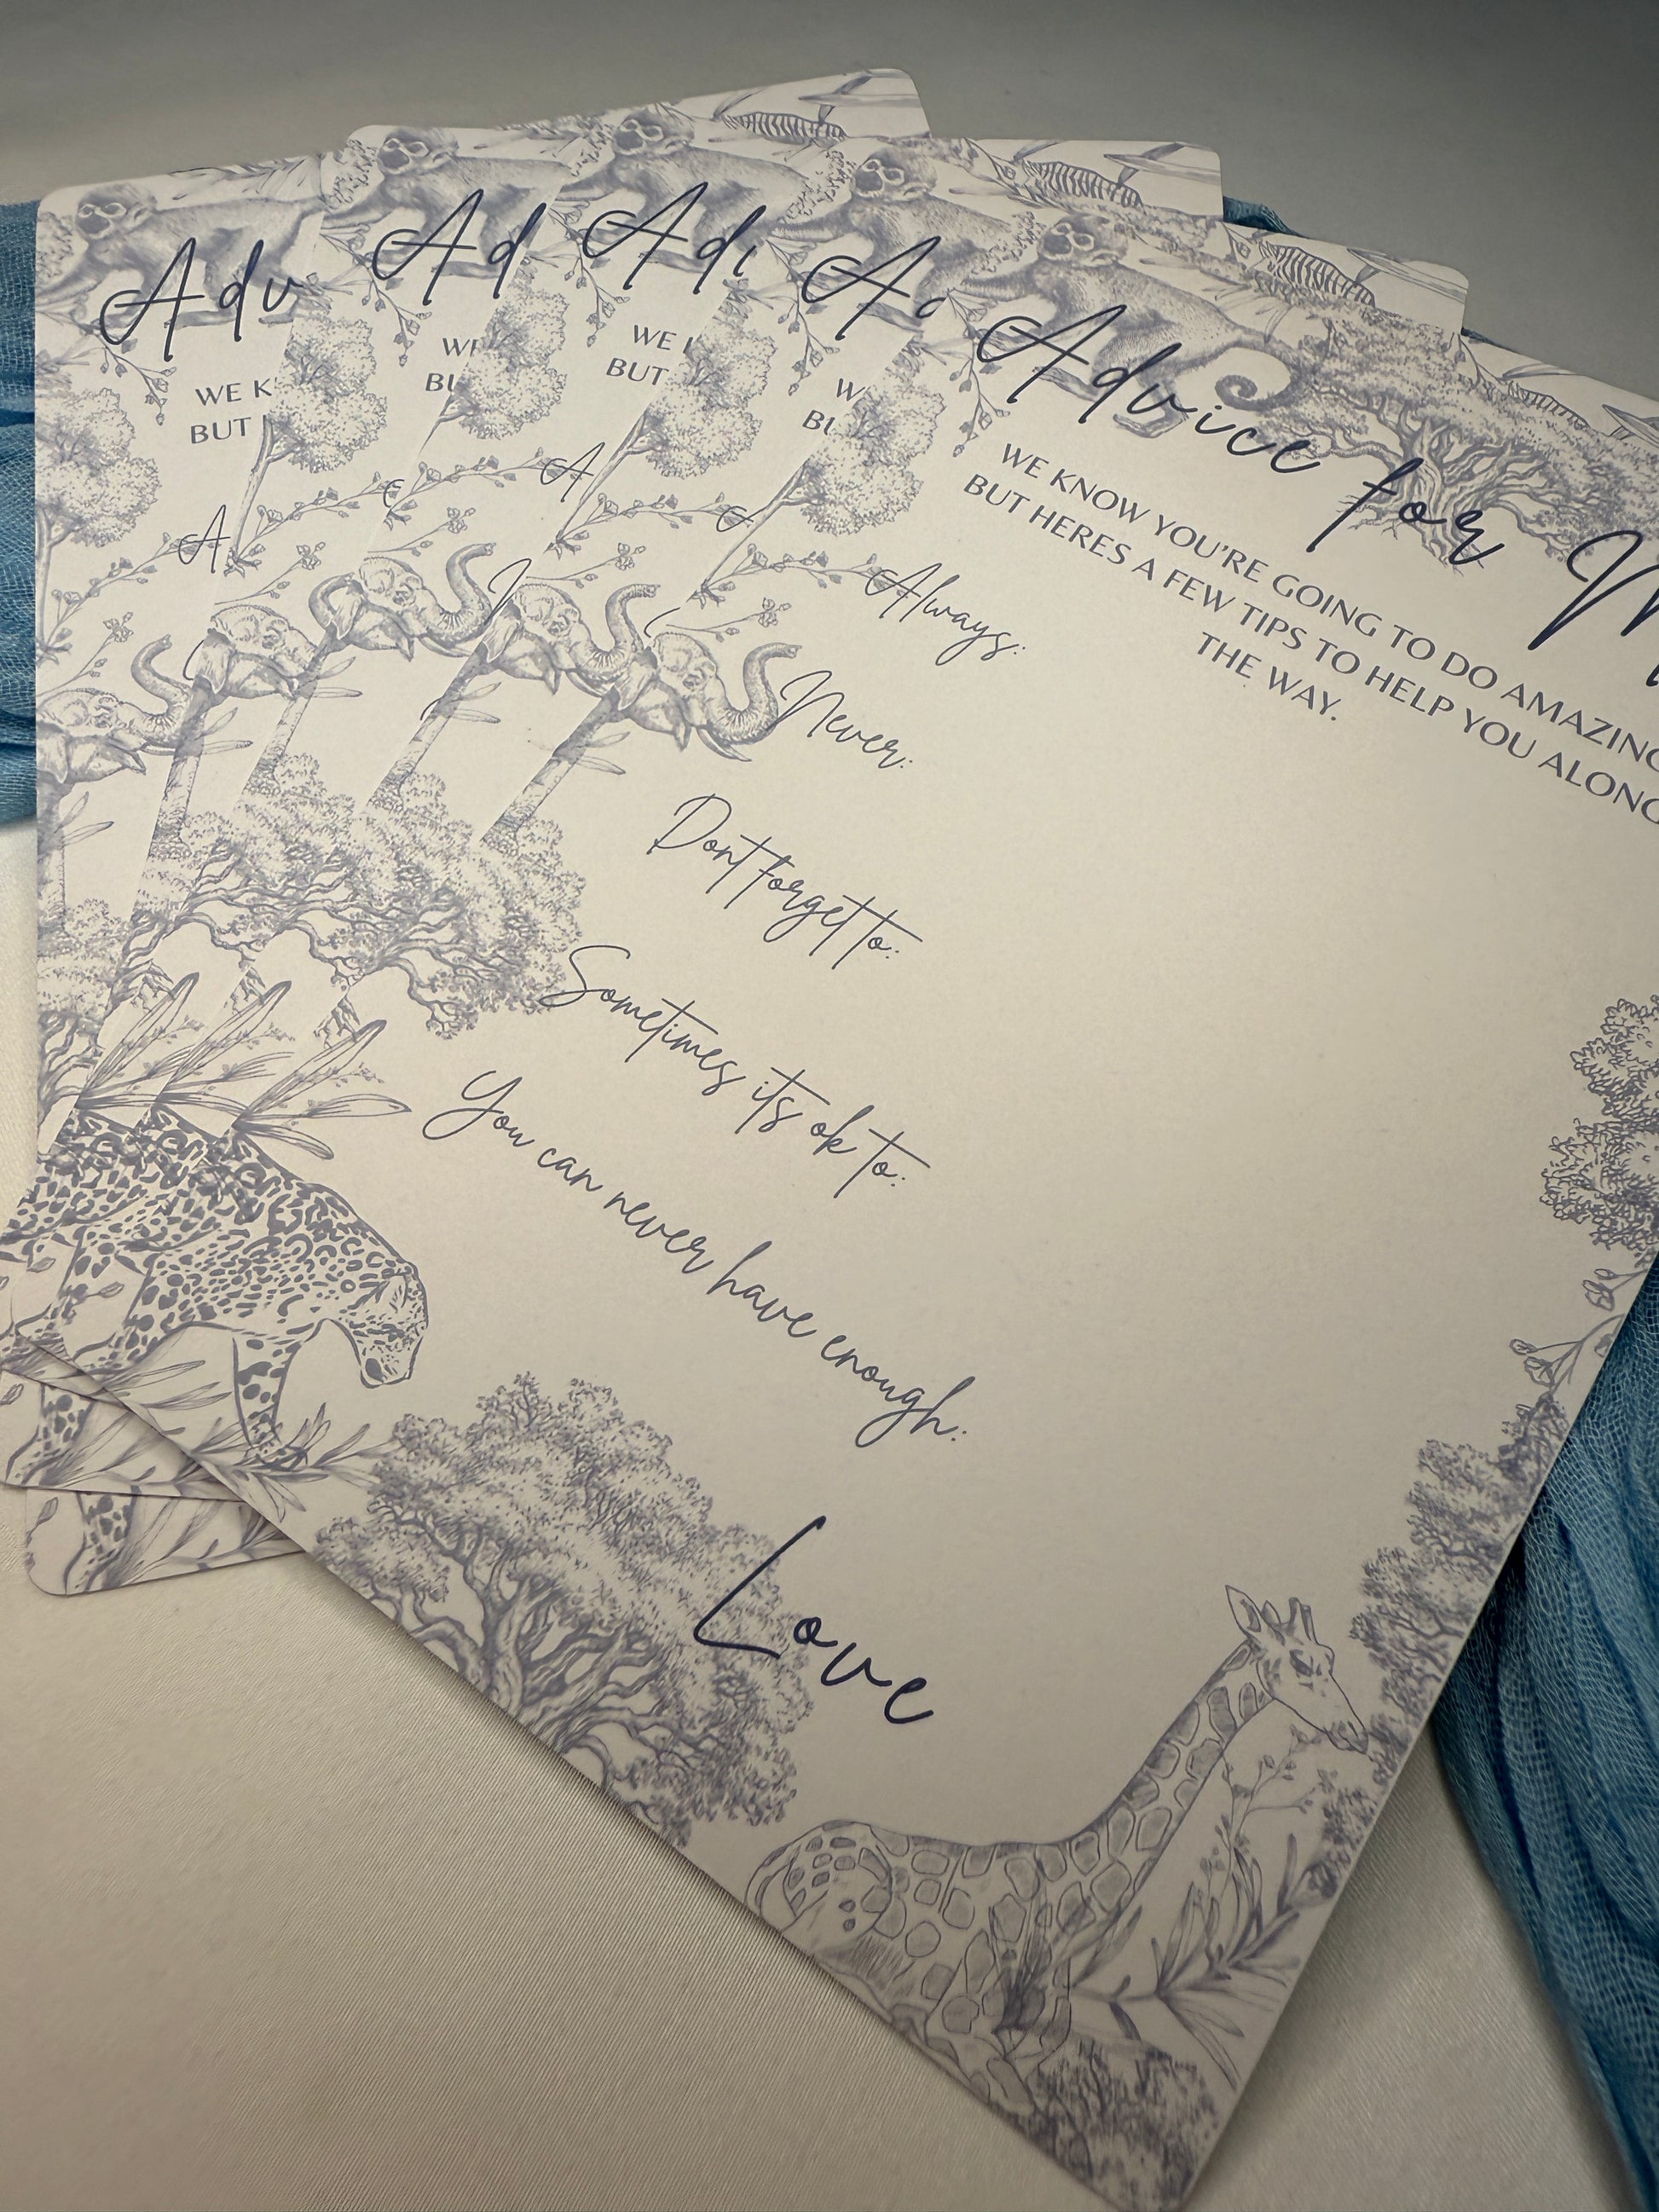 Adv
WE K
BUT
A
Ad
WE
BU
A
Ad
WE
BUT
A
A
W
BU
Advice for M
WE KNOW YOU'RE GOING TO DO AMAZING
BUT HERES A FEW TIPS TO HELP YOU ALONG
THE WAY.
Always:
Never:
Dont forget to:
Sometimes its ok to:
You can never have enough:
Love